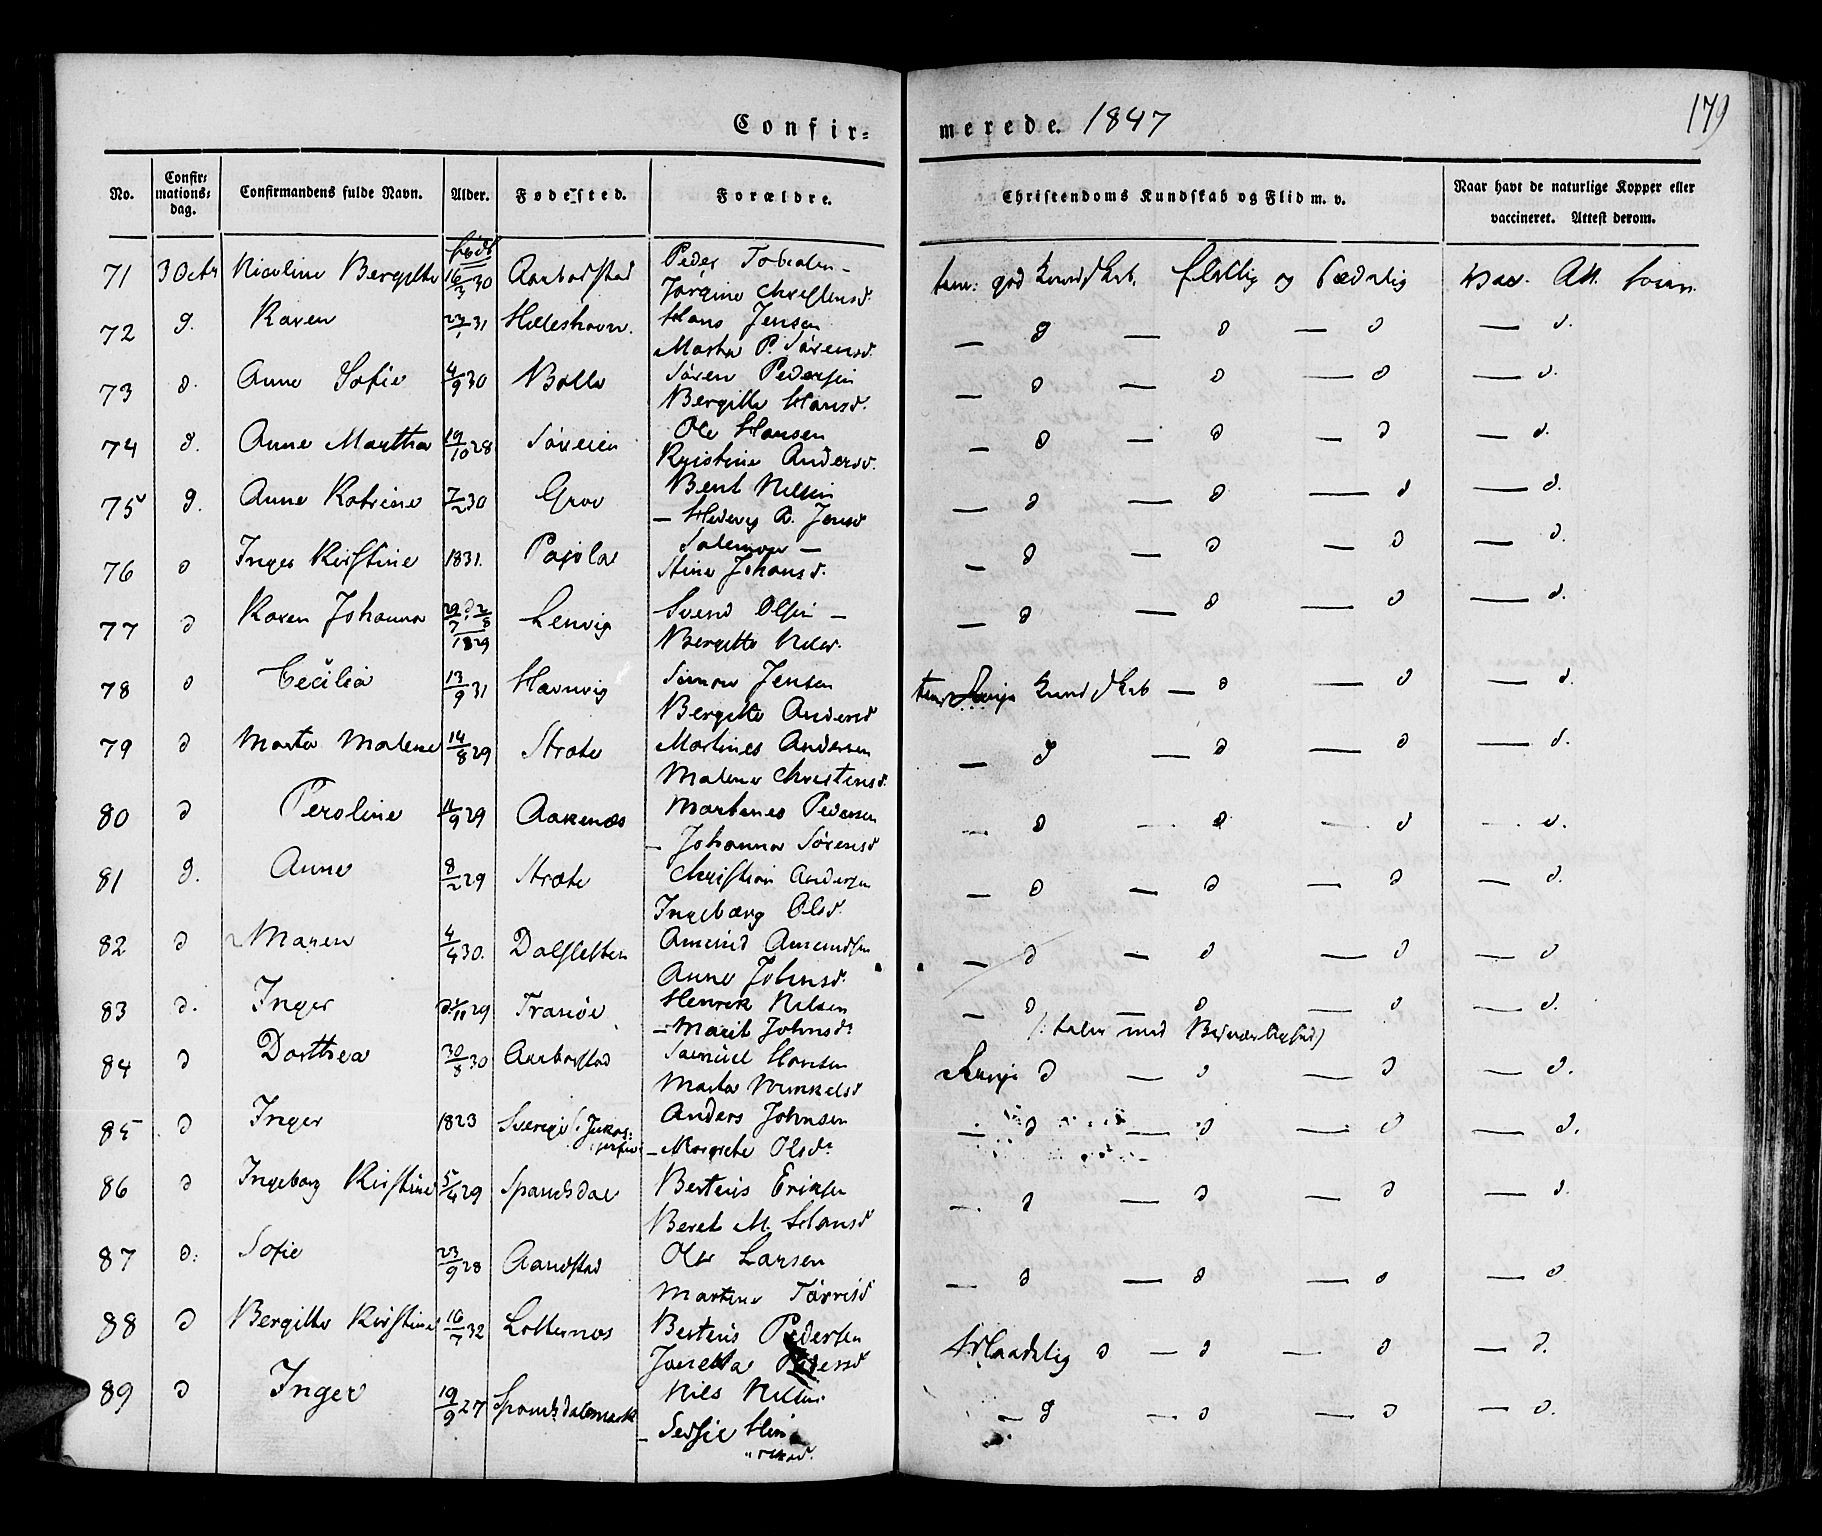 Confir-
merede. 1847
179
No.
Confir-
mations-
dag.
Confirmandens fulde Navn.
Alder.
Fødested.
Forældre.
Christendoms Kundskab og Flid m. v.
Naar havt de naturlige Kopper eller
vaccineret. Attest derom.
født
71 3 Octr Nicoline Bergitte 16/3 30 Peder Tobiasen -
Jørgine Christensd. tem: god Kundskab. flittig og Sædelig Vac. Att.
72 d. Karen 23/1 31 Hans Jensen
Marta P. Sørensd. — d — d — d — d.
73 d. Anne Sofie 4/9 30 Bolla Søren Pedersen
Bergitte Hansd. — d — d — d — d.
74 d. Anne Martha 19/10 28 Sørreien Ole Hansen
Kristine Andersd. — d — d — d — d.
75 d. Anne Katrine 7/2 30 Grov Bent Nilsen
— Hedevig A. Jensd — d — d — d — d.
76 d Inger Kirstine 1831. Pajola Salomon —
Stine Johansd. — d — d — d — d.
77 d Karen Johanna 29/7 d. 2/8 1829 Lenvig Svend Olsen —
Bergitte Nilsd. — d — d — d — d.
78 d Cecilia 13/9 31 Havnvig Simon Jensen
Bergitte Andersd Kundskab — d — d — d.
79 d Marta Malene 14/8 29 Strate Martines Andersen
Malene Christensd. — d — d — d — d.
80 d Peroline 11/9 29 Aakenæs Martines Pedersen
— Johanna Sørensd — d — d — d — d.
81 d. Anne 8/2 29 Strate Christian Andersen
Ingebærg Olsd. — d — d — d — d.
82 d Maren 4/4 30. Dalsletten Amund Amundsen
Anne Johnsd. — d — d — d — d
83 d. Inger 29 Tranøe Henrik Nilsen
— Marit Johnsd. — d — d — d — d.
/: taler med Besværlighed /
84 d Dorthea 30/8 30 Aarbostad Samuel Hansen
Marta Mikkelsd d — d — d — d.
85 d Inger 1823 Sverige Anders Johnsen
— Margrete Olsd. — d — d — d — d.
86 d Ingeborg Kirstine 5/4 29 Spansdal Berteus Eriksen
Beret M. Hansd — d — d — d — d.
87 d. Sofie 23/9 28 Aanstad Ole Larsen
Martine Tørrisd — d — d — d — d
88 d Bergitte Kirstine 16/7 32 Lotternæs Berteus Pedersen
Maadelig d — d — d — d.
89 d Inger 19/9 27 Spansdalsmark Nils Nilsen
— d — d — d — d.